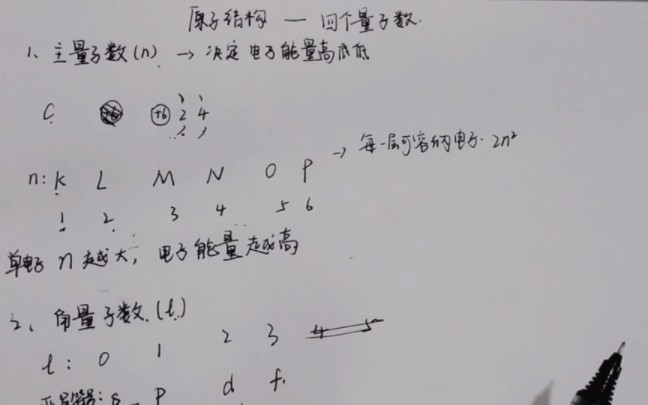 原子结构 — 四个量子数.
1、主量子数(n) → 决定电子能量高低
C +6 2 4
n: K L M N O P → 每一层可容纳电子. 2n²
1 2 3 4 5 6
单电子 n 越大, 电子能量越高
2、角量子数.(l)
l: 0 1 2 3 4 5
s p d f.